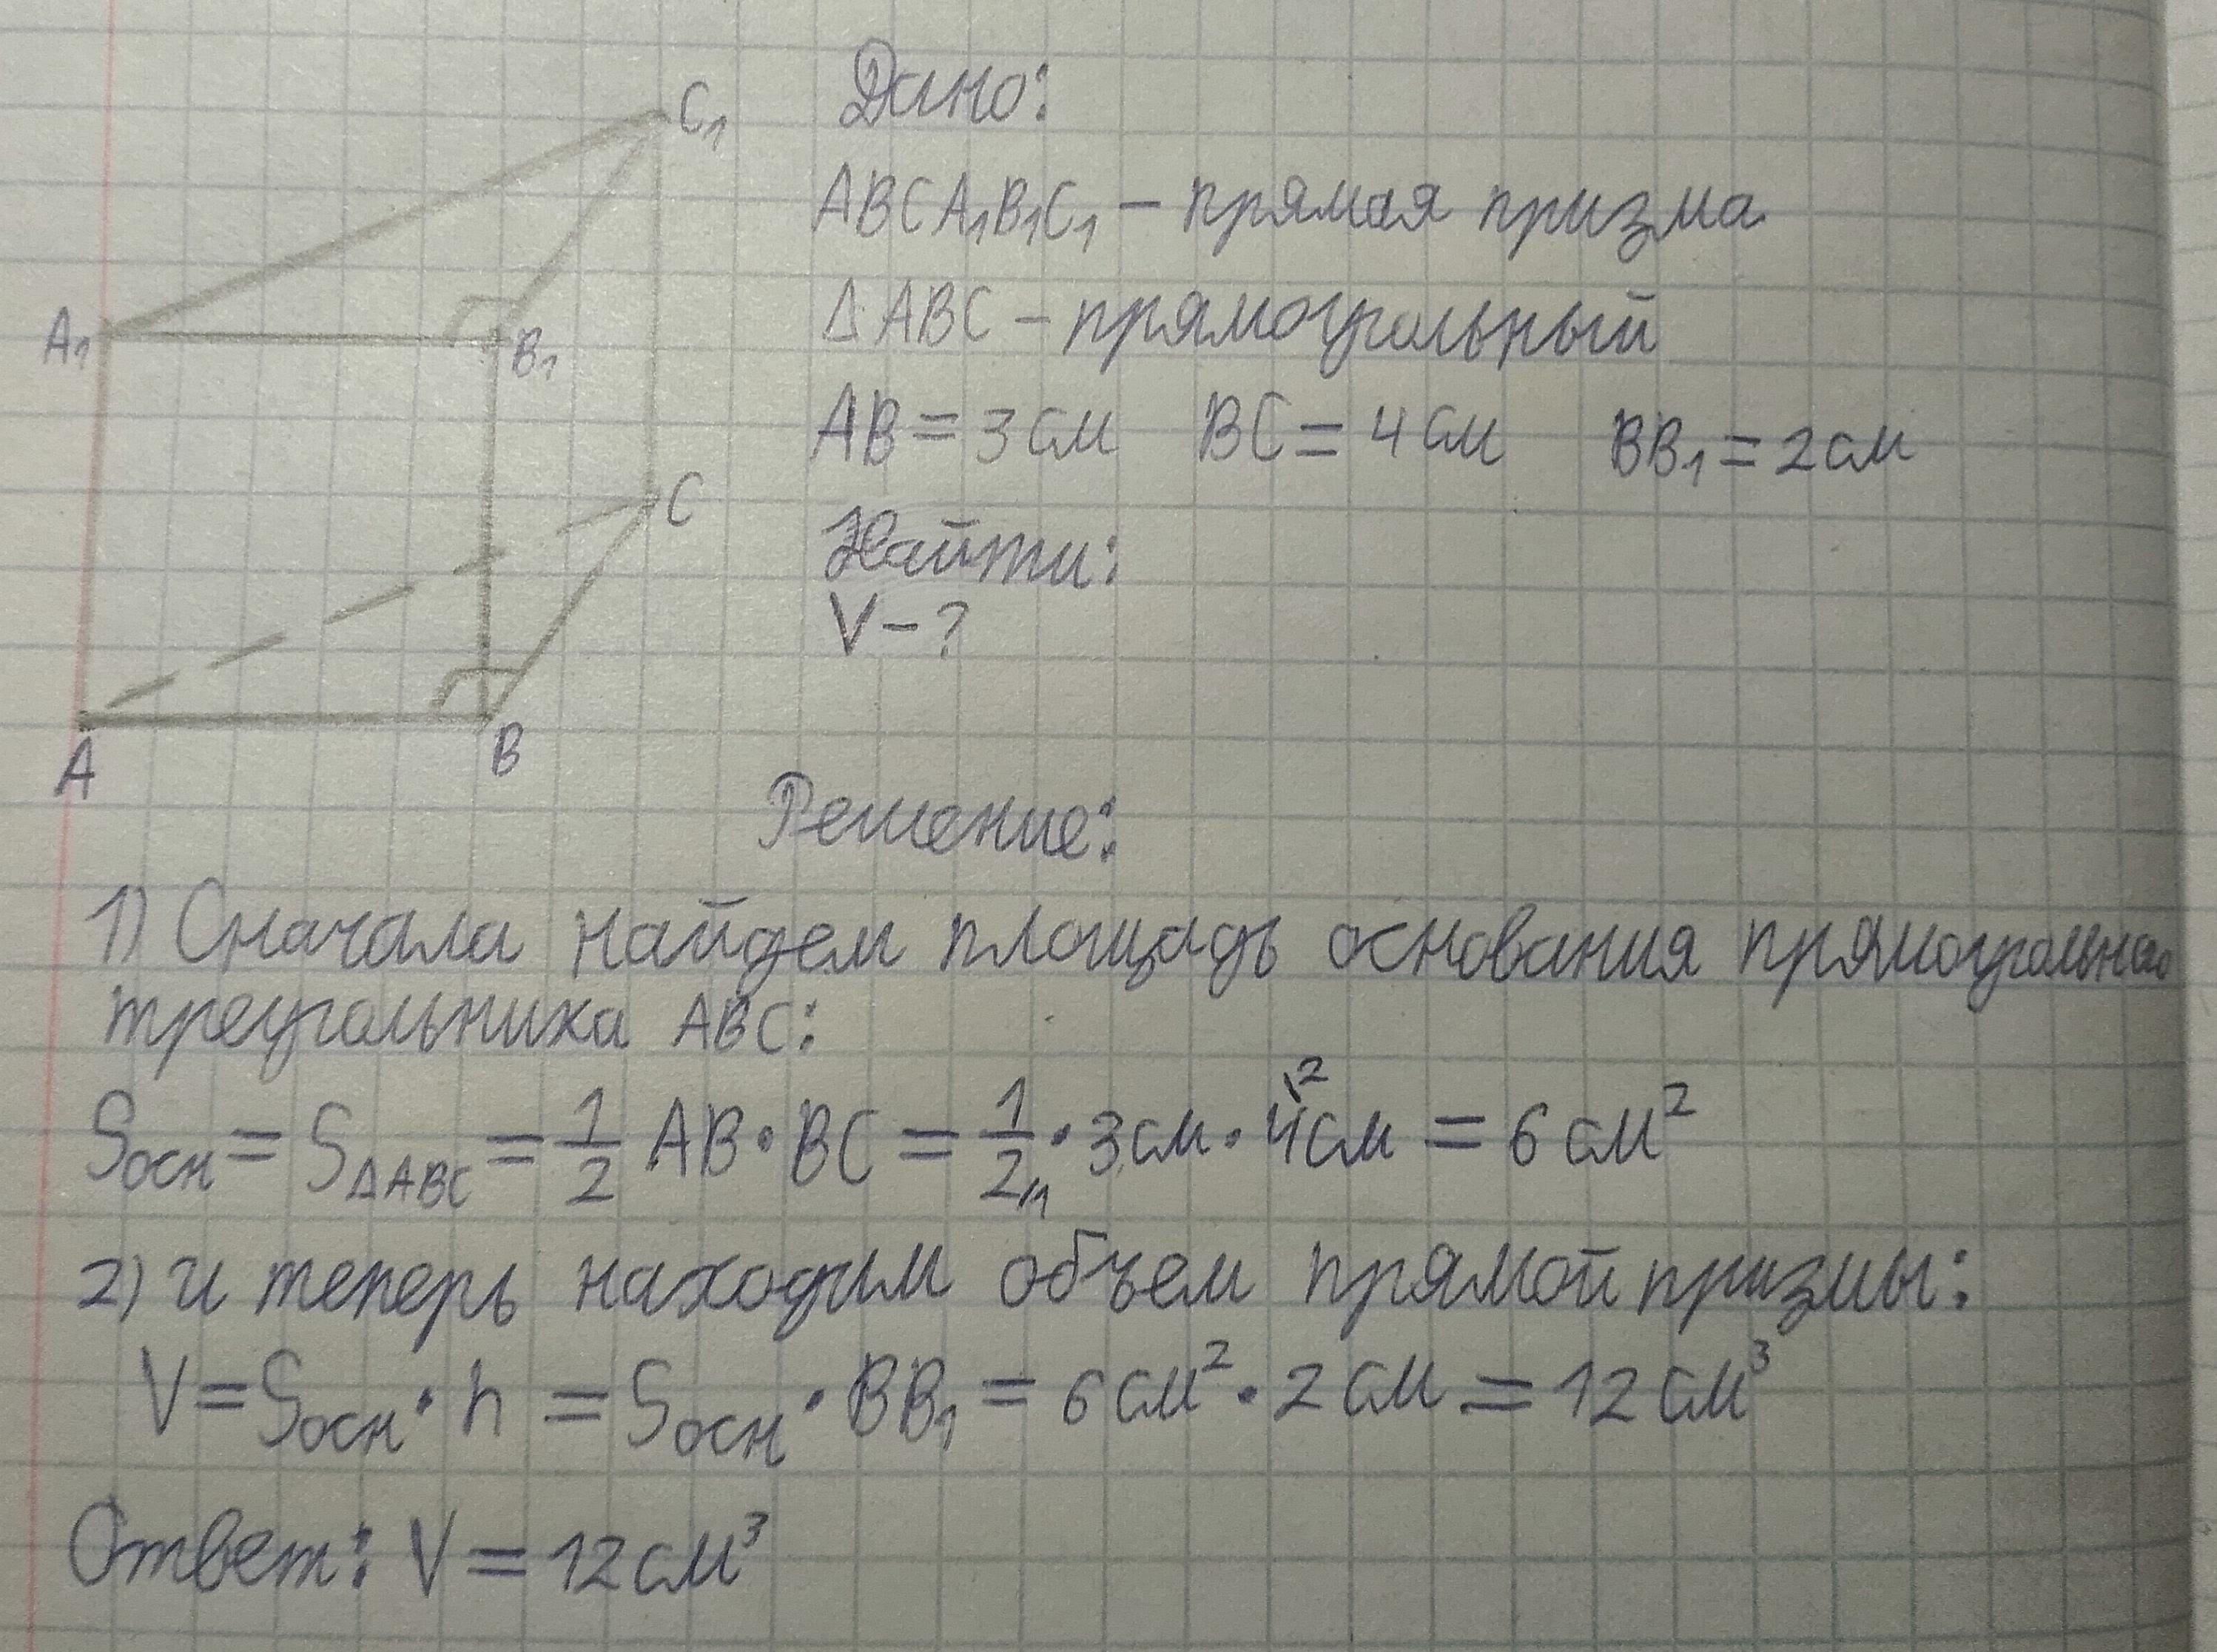 Дано:
ABCA₁B₁C₁ – прямая призма
ΔABC – прямоугольный
AB = 3 см BC = 4 см BB₁ = 2 см
Найти:
V – ?
C₁
A₁
B₁
C
A
B
Решение:
1) Сначала найдем площадь основания прямоугольного
треугольника ABC:
Sосн = SΔABC = 1/2 AB · BC = 1/2\1 · 3 см · 4\2 см = 6 см²
2) и теперь находим объем прямой призмы:
V = Sосн · h = Sосн · BB₁ = 6 см² · 2 см = 12 см³
Ответ: V = 12 см³